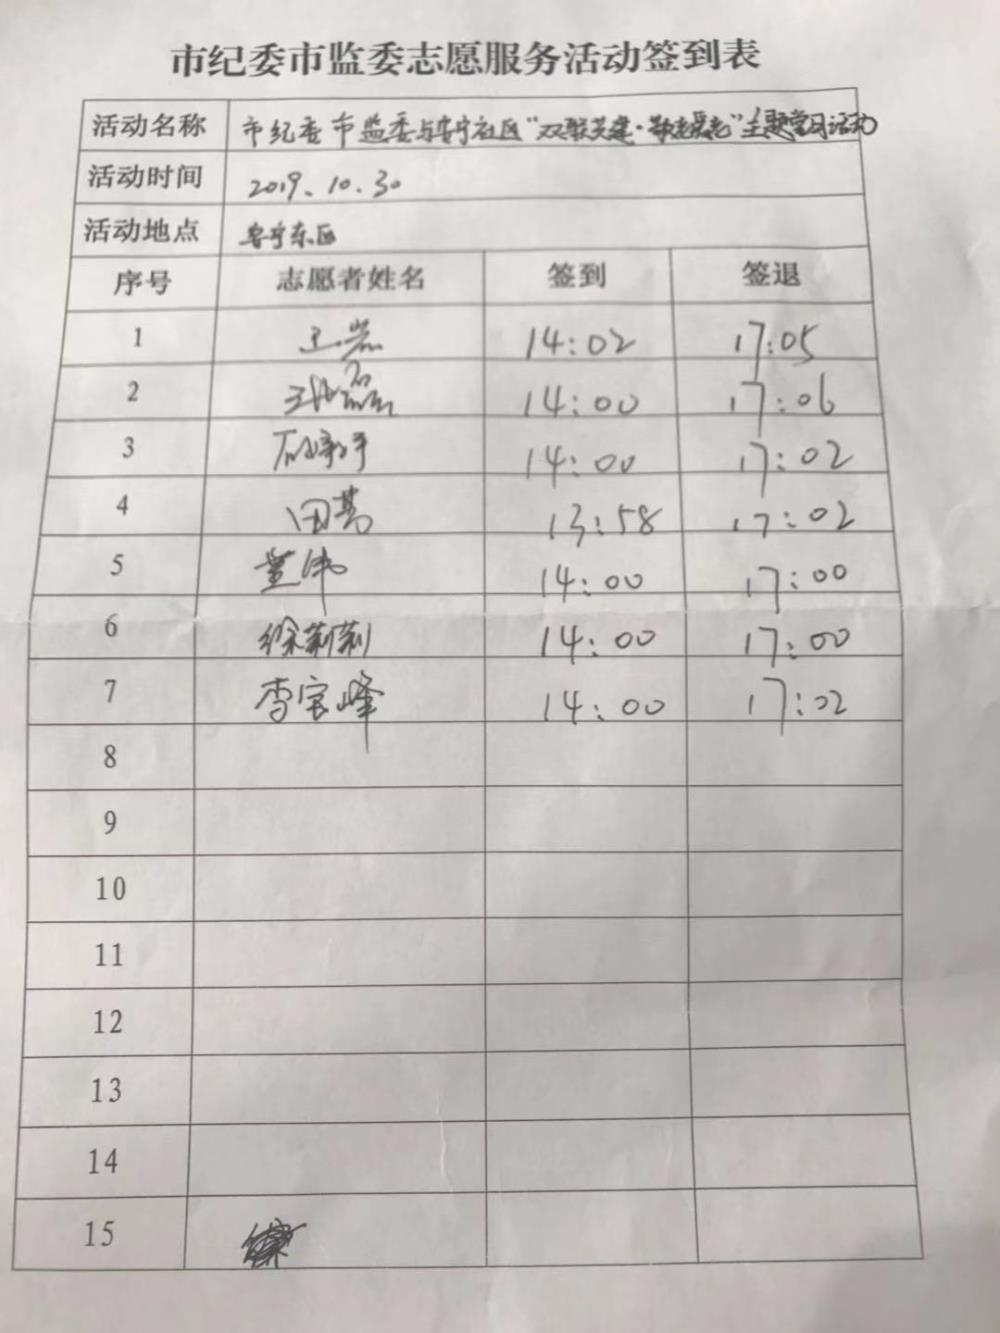 市纪委市监委志愿服务活动签到表
活动名称 市纪委市监委与鲁宁社区"双联共建·敬老爱老"主题党日活动
活动时间 2019.10.30
活动地点 鲁宁东区
序号 志愿者姓名 签到 签退
1 王岩 14:02 17:05
2 磊 14:00 17:06
3 14:00 17:02
4 田 13:58 17:02
5 董伟 14:00 17:00
6 徐莉莉 14:00 17:00
7 李宝峰 14:00 17:02
8
9
10
11
12
13
14
15